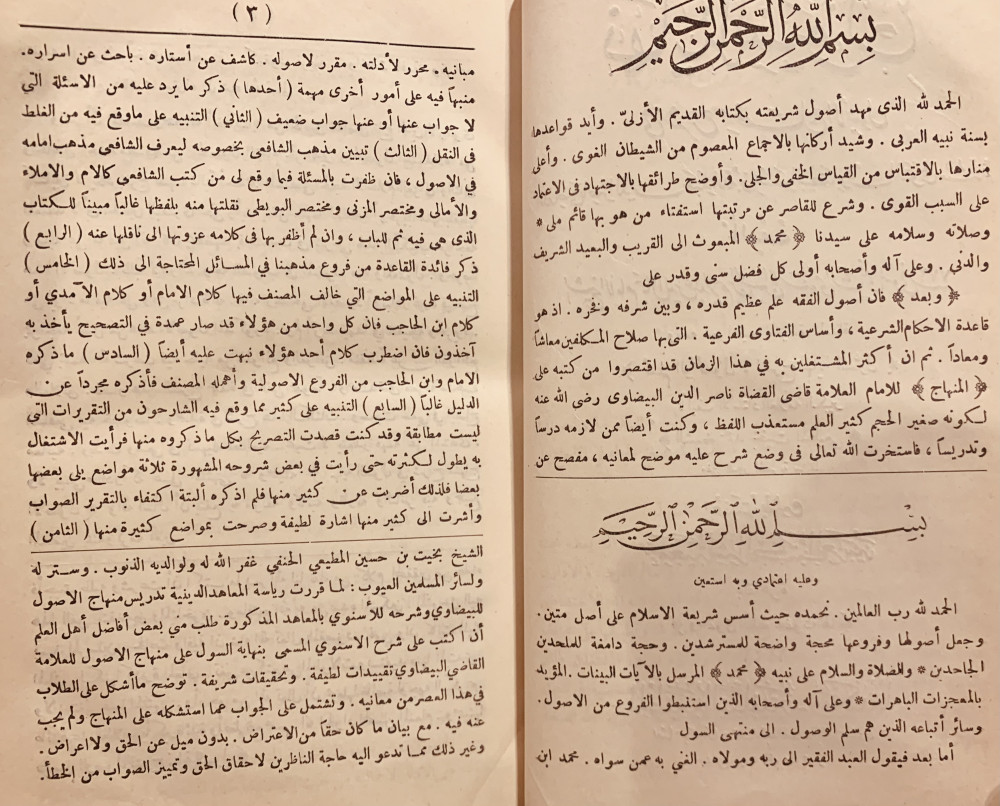 بسم الله الرحمن الرحيم
الحمد لله الذى مهد أصول شريعته بكتابه القديم الأزلىّ . وأيد قواعدها
بسنة نبيه العربى . وشيد أركانها بالاجماع المعصوم من الشيطان الغوى . وأعلى
منارها بالاقتباس من القياس الخفى والجلى . وأوضح طرائقها بالاجتهاد فى الاعتماد
على السبب القوى . وشرع للقاصر عن مرتبتها استفتاء من هو بها قائم ملى *
وصلاته وسلامه على سيدنا ﴿ محمد ﴾ المبعوث الى القريب والبعيد الشريف
والدنى . وعلى آله وأصحابه أولى كل فضل سنى وقدر على
﴿ وبعد ﴾ فان أصول الفقه علم عظيم قدره ، وبين شرفه وفخره . اذ هو
قاعدة الاحكام الشرعية ، وأساس الفتاوى الفرعية . التى بها صلاح المكلفين معاشاً
ومعاداً . ثم ان أكثر المشتغلين به في هذا الزمان قد اقتصروا من كتبه على
﴿ المنهاج ﴾ للامام العلامة قاضى القضاة ناصر الدين البيضاوى رضى الله عنه
لكونه صغير الحجم كثير العلم مستعذب اللفظ ، وكنت أيضاً ممن لازمه درساً
وتدريساً ، فاستخرت الله تعالى فى وضع شرح عليه موضح لمعانيه ، مفصح عن
بسم الله الرحمن الرحيم
وعليه اعتمادي وبه استعين
الحمد لله رب العالمين . نحمده حيث أسس شريعة الاسلام على أصل متين .
وجعل أصولها وفروعها محجة واضحة للمسترشدين . وحجة دامغة للملحدين
الجاحدين * والصلاة والسلام على نبيه ﴿ محمد ﴾ المرسل بالآيات البينات . المؤيد
بالمعجزات الباهرات * وعلى آله وأصحابه الذين استنبطوا الفروع من الاصول .
وسائر أتباعه الذين هم سلم الوصول . الى منتهى السول
أما بعد فيقول العبد الفقير الى ربه ومولاه . الغني به عمن سواه . محمد ابن
( ٣ )
مبانيه . محرر لأدلته . مقرر لاصوله . كاشف عن أستاره . باحث عن اسراره .
منبهاً فيه على أمور أخرى مهمة ( أحدها ) ذكر ما يرد عليه من الاسئلة التى
لا جواب عنها أو عنها جواب ضعيف ( الثاني ) التنبيه على ماوقع فيه من الغلط
فى النقل ( الثالث ) تبيين مذهب الشافعى بخصوصه ليعرف الشافعي مذهب امامه
في الاصول ، فان ظفرت بالمسئلة فيما وقع لى من كتب الشافعى كالام والاملاء
والأمالى ومختصر المزنى ومختصر البويطى نقلتها منه بلفظها غالباً مبيناً للكتاب
الذى هي فيه ثم للباب ، وان لم أظفر بها فى كلامه عزوتها الى ناقلها عنه ( الرابع )
ذكر فائدة القاعدة من فروع مذهبنا في المسائل المحتاجة الى ذلك ( الخامس )
التنبيه على المواضع التي خالف المصنف فيها كلام الامام أو كلام الآمدي أو
كلام ابن الحاجب فان كل واحد من هؤلاء قد صار عمدة في التصحيح يأخذ به
آخذون فان اضطرب كلام أحد هؤلاء نبهت عليه أيضاً ( السادس ) ما ذكره
الامام وابن الحاجب من الفروع الاصولية وأهمله المصنف فأذكره مجرداً عن
الدليل غالباً ( السابع ) التنبيه على كثير مما وقع فيه الشارحون من التقريرات التي
ليست مطابقة وقد كنت قصدت التصريح بكل ما ذكروه منها فرأيت الاشتغال
به يطول لكثرته حتى رأيت في بعض شروحه المشهورة ثلاثة مواضع يلى بعضها
بعضا فلذلك أضربت عن كثير منها فلم اذكره ألبتة اكتفاء بالتقرير الصواب
وأشرت الى كثير منها اشارة لطيفة وصرحت بمواضع كثيرة منها ( الثامن )
الشيخ بخيت بن حسين المطيعي الحنفي غفر الله له ولوالديه الذنوب . وستر له
ولسائر المسلمين العيوب : لما قررت رياسة المعاهد الدينية تدريس منهاج الاصول
للبيضاوي وشرحه للأسنوي بالمعاهد المذكورة طلب مني بعض أفاضل أهل العلم
أن اكتب على شرح الاسنوي المسمى بنهاية السول على منهاج الاصول للعلامة
القاضي البيضاوي تقييدات لطيفة . وتحقيقات شريفة . توضح ما أشكل على الطلاب
في هذا العصر من معانيه . وتشتمل على الجواب عما استشكله على المنهاج ولم يجب
عنه فيه . مع بيان ما كان حقاً من الاعتراض . بدون ميل عن الحق ولا اعراض .
وغير ذلك مما تدعو اليه حاجة الناظرين لاحقاق الحق وتمييز الصواب من الخطأ .